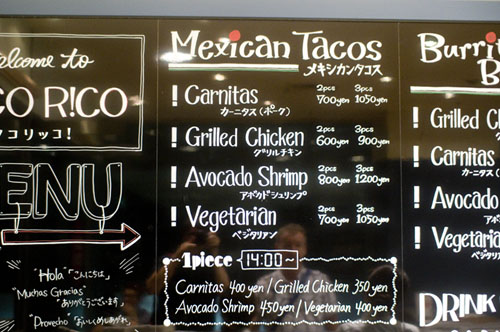 elcome to
CO R!CO
コリッコ!
ENU
"Hola" "こんにちは"
"Muchas Gracias"
"ありがとうございます"
"Provecho"
Mexican Tacos
メキシカンタコス
! Carnitas 2pcs 700yen 3pcs 1050yen
カーニタス(ポーク)
! Grilled Chicken 2pcs 600yen 3pcs 900yen
グリルチキン
! Avocado Shrimp 2pcs 800yen 3pcs 1200yen
アボカドシュリンプ
! Vegetarian 2pcs 700yen 3pcs 1050yen
ベジタリアン
1piece 14:00~
Carnitas 400yen / Grilled Chicken 350yen
Avocado Shrimp 450yen / Vegetarian 400yen
Burri
B
! Grilled C
グ
! Carnitas
カーニタス(
! Avocado
アボ
! Vegetaria
ベジ
DRINK